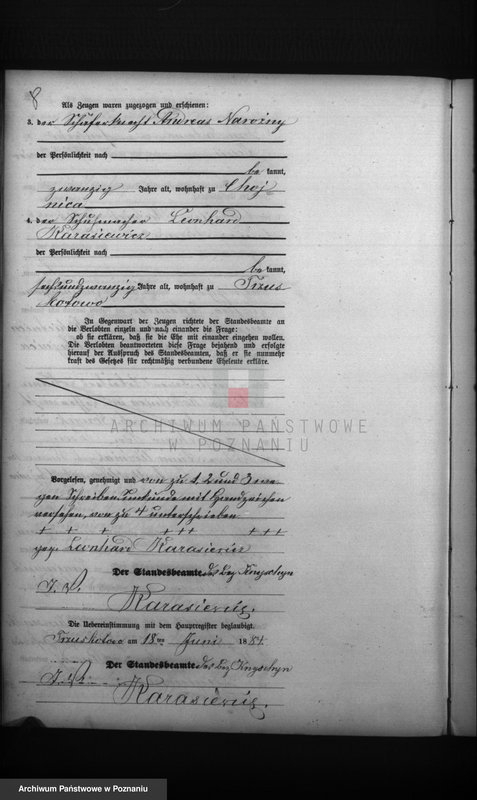 8
Als Zeugen waren zugezogen und erschienen:
3. der Schäferknecht Andreas Nawrizny
der Persönlichkeit nach
be kannt,
zwanzig Jahre alt, wohnhaft zu Choj
nica
4. der Schuhmacher Leonhard
Karasiewicz
der Persönlichkeit nach
be kannt,
sechsundzwanzig Jahre alt, wohnhaft zu Trzus
kotowo
In Gegenwart der Zeugen richtete der Standesbeamte an
die Verlobten einzeln und nach einander die Frage:
ob sie erklären, daß sie die Ehe mit einander eingehen wollen.
Die Verlobten beantworteten diese Frage bejahend und erfolgte
hierauf der Ausspruch des Standesbeamten, daß er sie nunmehr
kraft des Gesetzes für rechtmäßig verbundene Eheleute erkläre.
ARCHIWUM PAŃSTWOWE
W POZNANIU
Vorgelesen, genehmigt und von zu 1, 2 und 3 we
gen Schreibensunkunde mit Handzeichen
versehen, von zu 4 unterschrieben
+ + + +++ +++
gez. Leonhard Karasiewicz
Der Standesbeamte des Bez.
J. V.
Karasiewicz.
Die Uebereinstimmung mit dem Hauptregister beglaubigt.
Trzuskotowo am 18ten Juni 1881.
Der Standesbeamte des Bez.
J. V.
Karasiewicz.
Archiwum Państwowe w Poznaniu